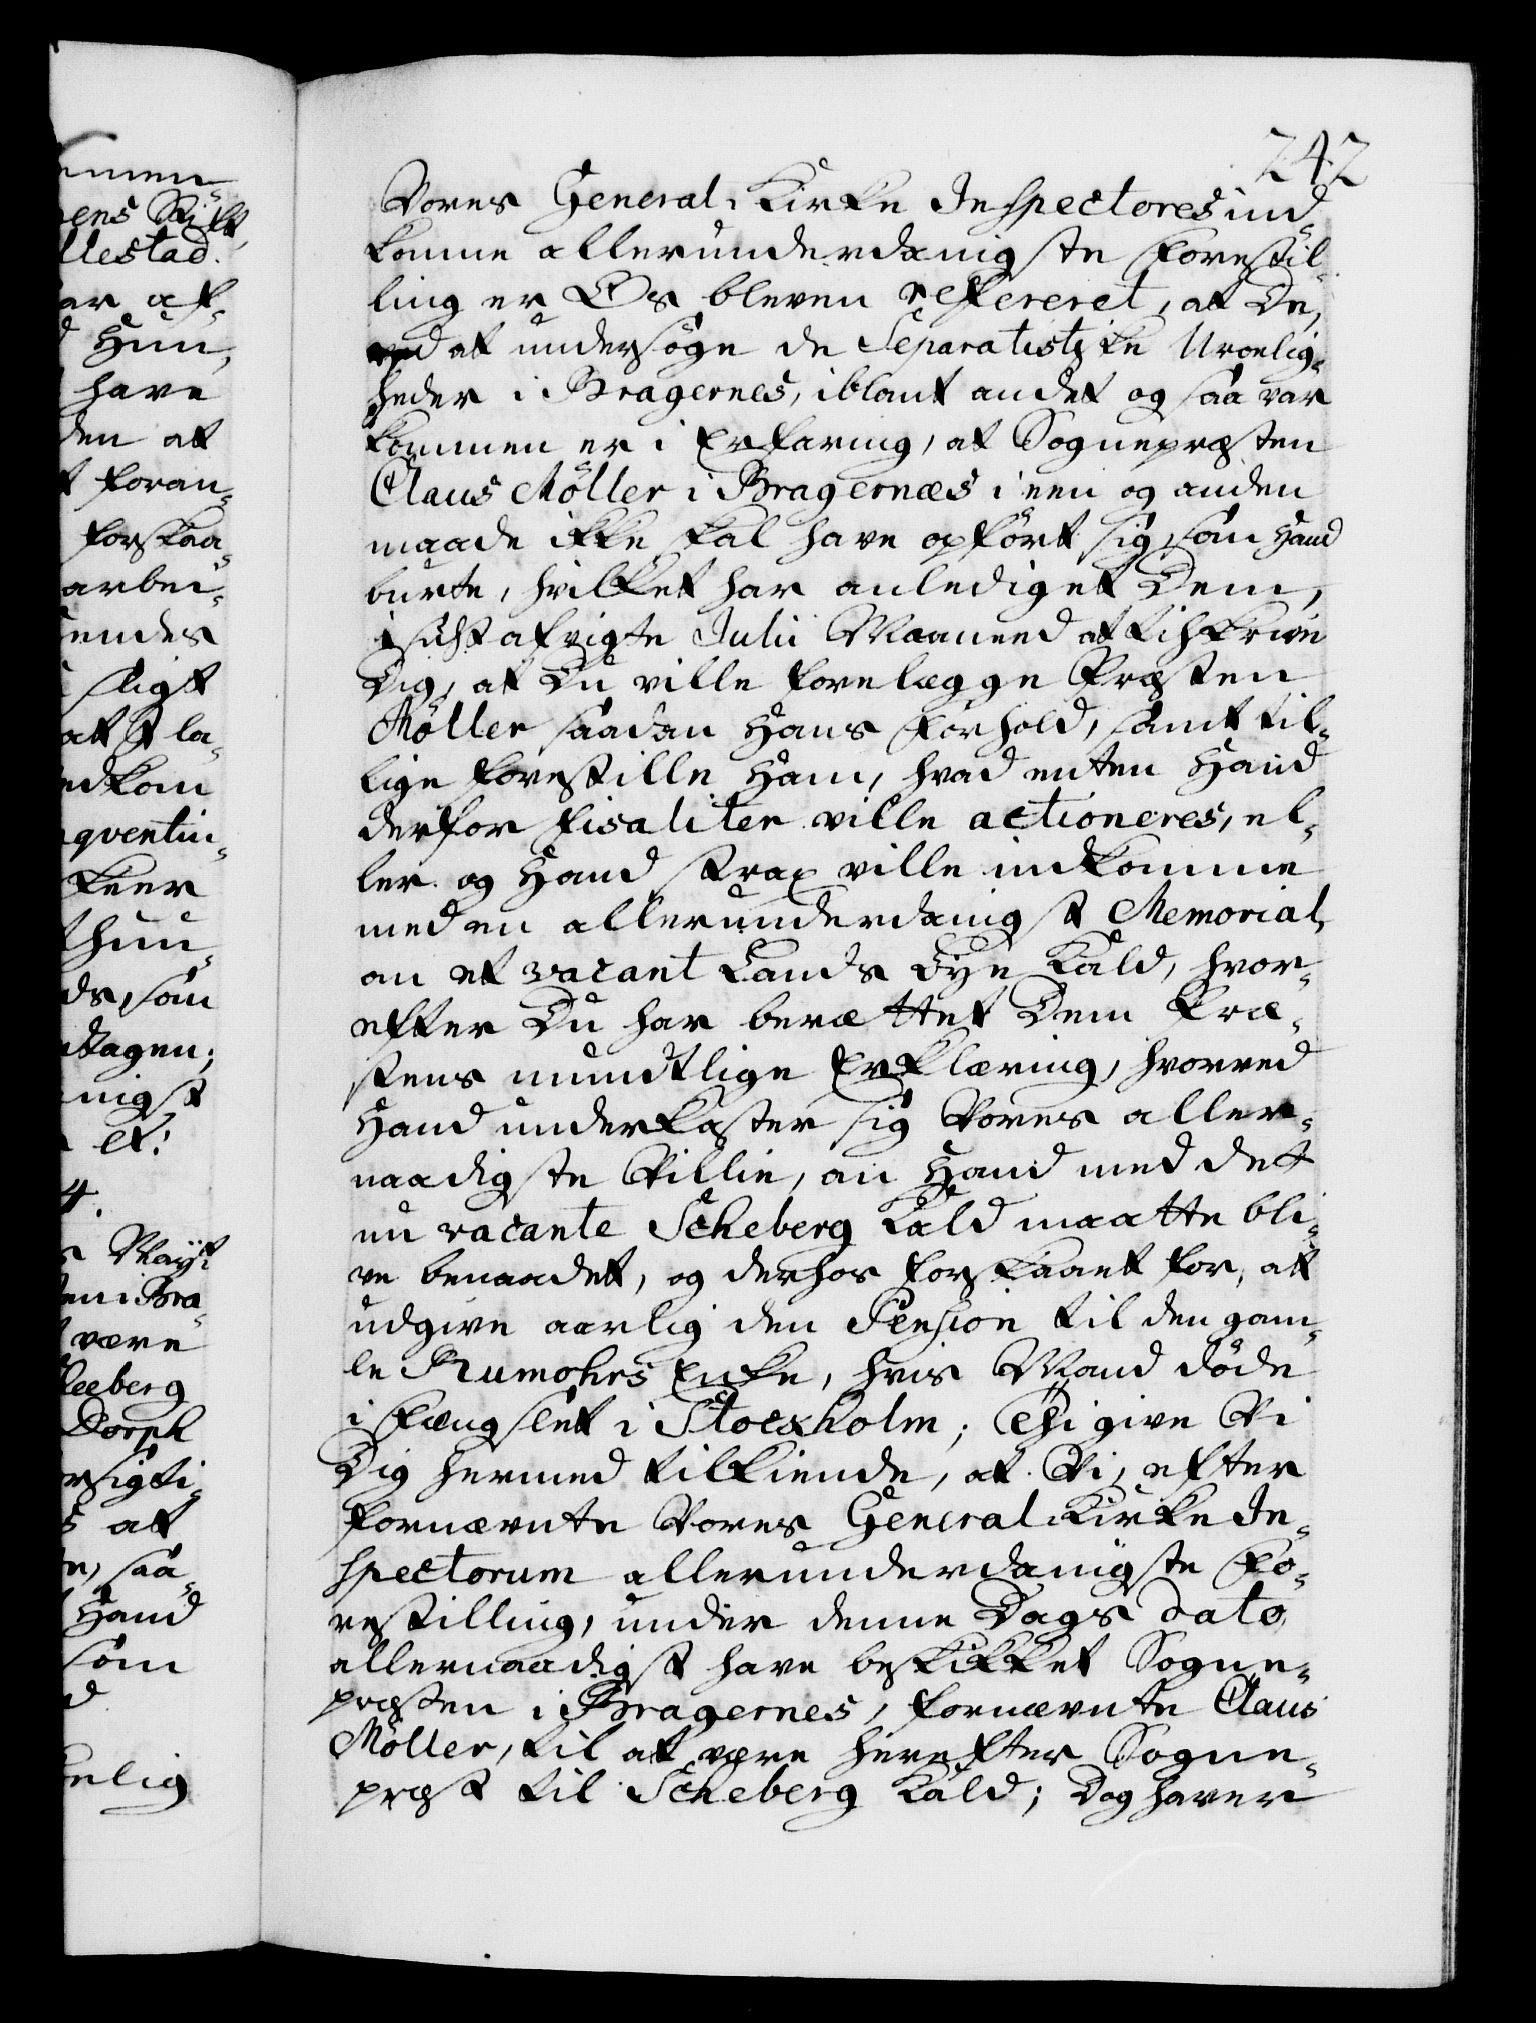 emmen¬
ens Stift,
llestad.
ar af¬
d Hun,
have
den at
t foran¬
forskaa¬
arbei¬
endes
sligt
at la¬
edkom
qventin¬
keer
thun¬
ds, som
dtagen;
nigst
et:
4.
s Mayt:
en i Bra¬
være
leeberg
Dorph
rsigti¬
s at
e, saa¬
Hand
som
d
kelig
242
Vores General-Kirke Inspectores ind¬
komne allerunderdanigste Forestil¬
ling er Os bleven refereret, at De,
ved at undersöge de Separatistiske Uroelig¬
heder i Bragernes, iblant andet og saa var
kommen er i Erfaring, at Sognepræsten
Claus Möller i Bragernæs i een og anden
maade ikke skal have opfört sig, som Hand
burte, hvilket har anlediget Dem,
i sidst afvigte Julii Maaned at tilskrive
Dig, at Du ville forelægge Præsten
Möller saadan Hans Forhold, samt til¬
lige forestille Ham, hvad enten Hand
derfor fisaliter ville actioneres, el¬
ler og Hand strax ville indkomme
med en allerunderdanigst Memorial
om et vacant Lands Bye Kald, hvor¬
efter Du har berættet Dem Præ¬
stens mundtlige Erklæring, hvorved
Hand underkaster sig Vores aller¬
naadigste Villie, om Hand med det
nu vacante Scheberg Kald maatte bli¬
ve benaadet, og derhos forskaanet for, at
udgive aarlig den Pension til den gam¬
le Rumohrs Enke, hvis Mand döde
i Fængslet i Stockholm; Thi give Vi
Dig hermed tilkiende, at Vi, efter
fornævnte Vores General Kirke In¬
spectorum allerunderdanigste Fo¬
restilling, under denne Dags dato
allernaadigst have beskikket Sogne¬
præsten i Bragernes, fornævnte Claus
Möller, til at være herefter Sogne¬
præst til Scheberg Kald; Dog haver